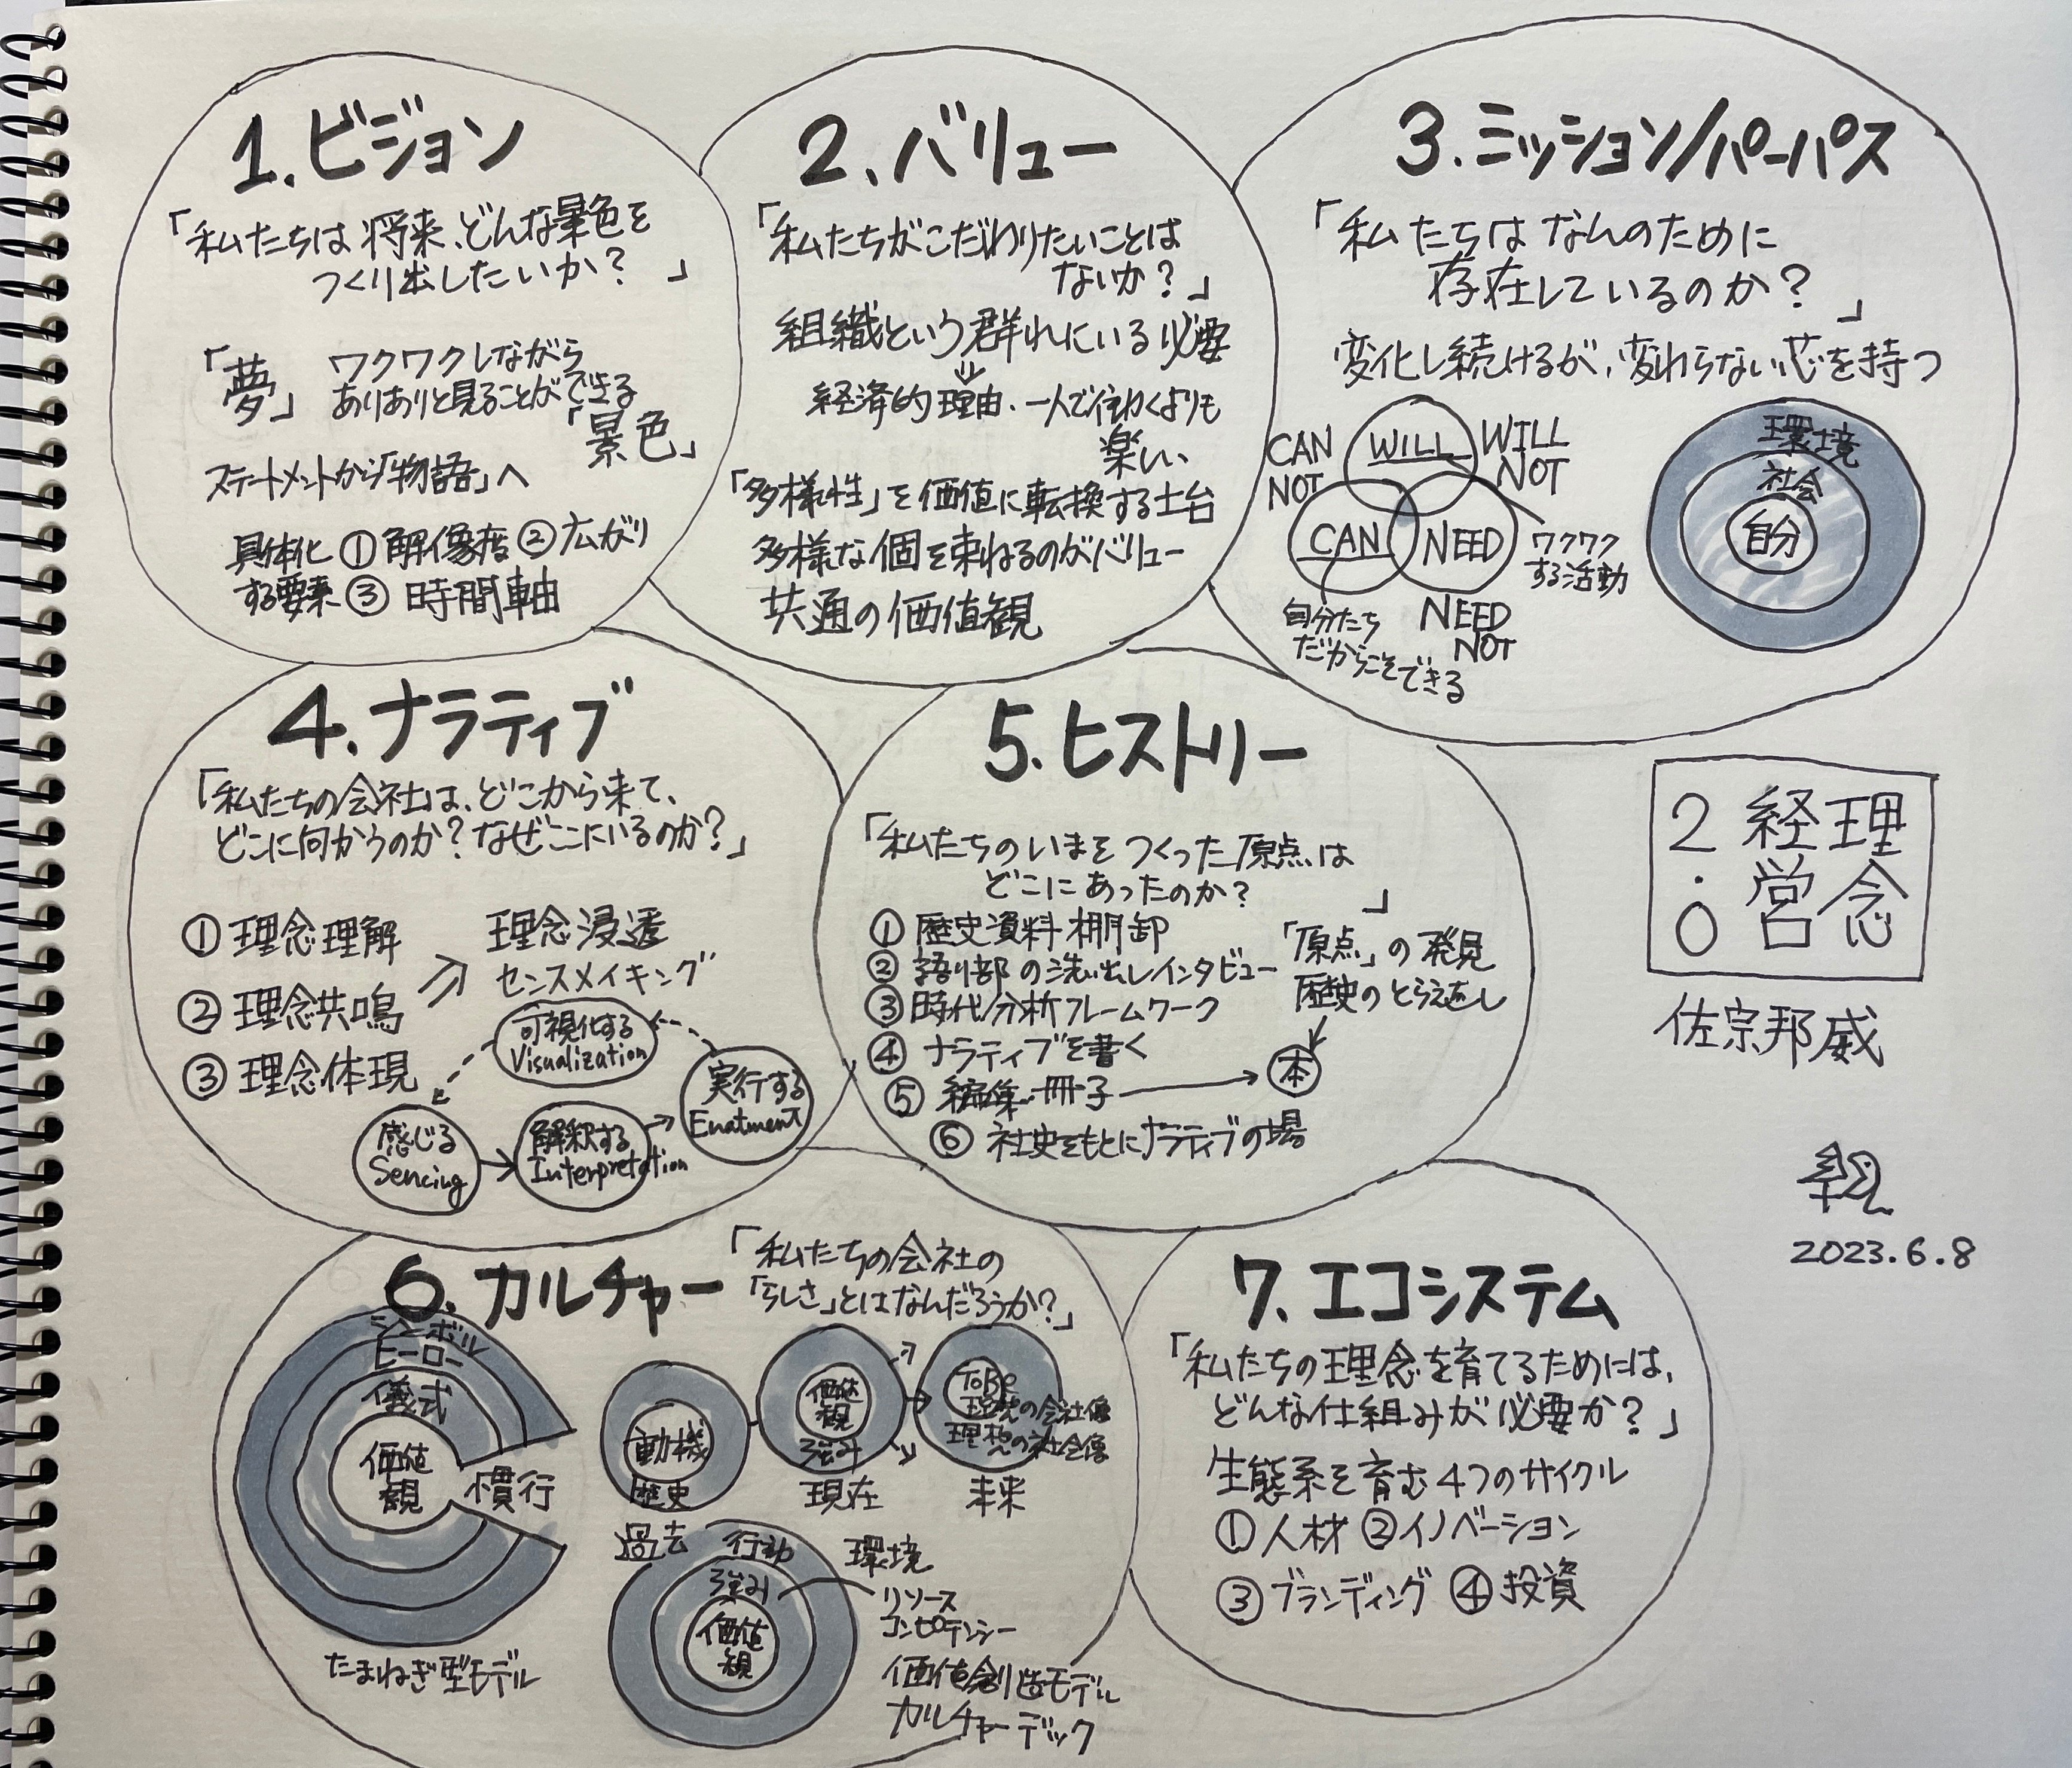 1.ビジョン
「私たちは将来、どんな景色を
つくり出したいか?」
「夢」
ワクワクしながら
ありありと見ることができる
「景色」
ステートメントから「物語」へ
具体化
する要素
①解像度②広がり
③時間軸
2.バリュー
「私たちがこだわりたいことは
ないか?」
組織という群れにいる必要
⇓
経済的理由、一人で往わくよりも
楽しい
「多様性」を価値に転換する土台
多様な個を束ねるのがバリュー
共通の価値観
3.ミッション/パーパス
「私たちはなんのために
存在しているのか?」
変化し続けるが、変わらない芯を持つ
CAN
NOT
WILL
WILL
NOT
CAN
NEED
ワクワク
する活動
自分たち
だからこそできる
NEED
NOT
環境
社会
自分
4.ナラティブ
「私たちの会社は、どこから来て、
どこに向かうのか?なぜここにいるのか?」
①理念理解
②理念共鳴
③理念体現
理念浸透
センスメイキング
可視化する
Visualization
感じる
Sencing
解釈する
Interpretation
実行する
Enatment
5.ヒストリー
「私たちのいまをつくった原点は
どこにあったのか?」
①歴史資料棚卸
②語り部の洗い出しインタビュー
③時代分析フレームワーク
④ナラティブを書く
⑤編集・冊子
⑥社史をもとにナラティブの場
「原点」の発見
歴史のとらえ直し
本
経営
理念
2.0
佐宗邦威
2023.6.8
6.カルチャー
「私たちの会社の
「らしさ」とはなんだろうか?」
シンボル
ヒーロー
儀式
価値
観
慣行
たまねぎ型モデル
動機
歴史
過去
価値
観
強み
現在
ToBe
理想の会社像
理想の社会像
未来
行動
強み
価値
観
環境
リソース
コンピテンシー
価値創造モデル
カルチャーデック
7.エコシステム
「私たちの理念を育てるためには、
どんな仕組みが必要か?」
生態系を育む4つのサイクル
①人材②イノベーション
③ブランディング④投資